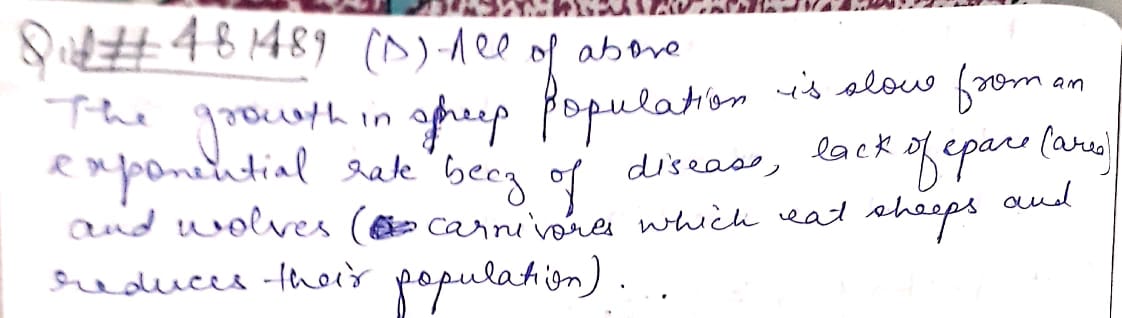 Qid## 481489 (D) All of above
The growth in sheep population is slow from an
exponential rate becz of disease, lack of space (area)
and wolves ( carnivores which eat sheeps and
reduces their population). . .